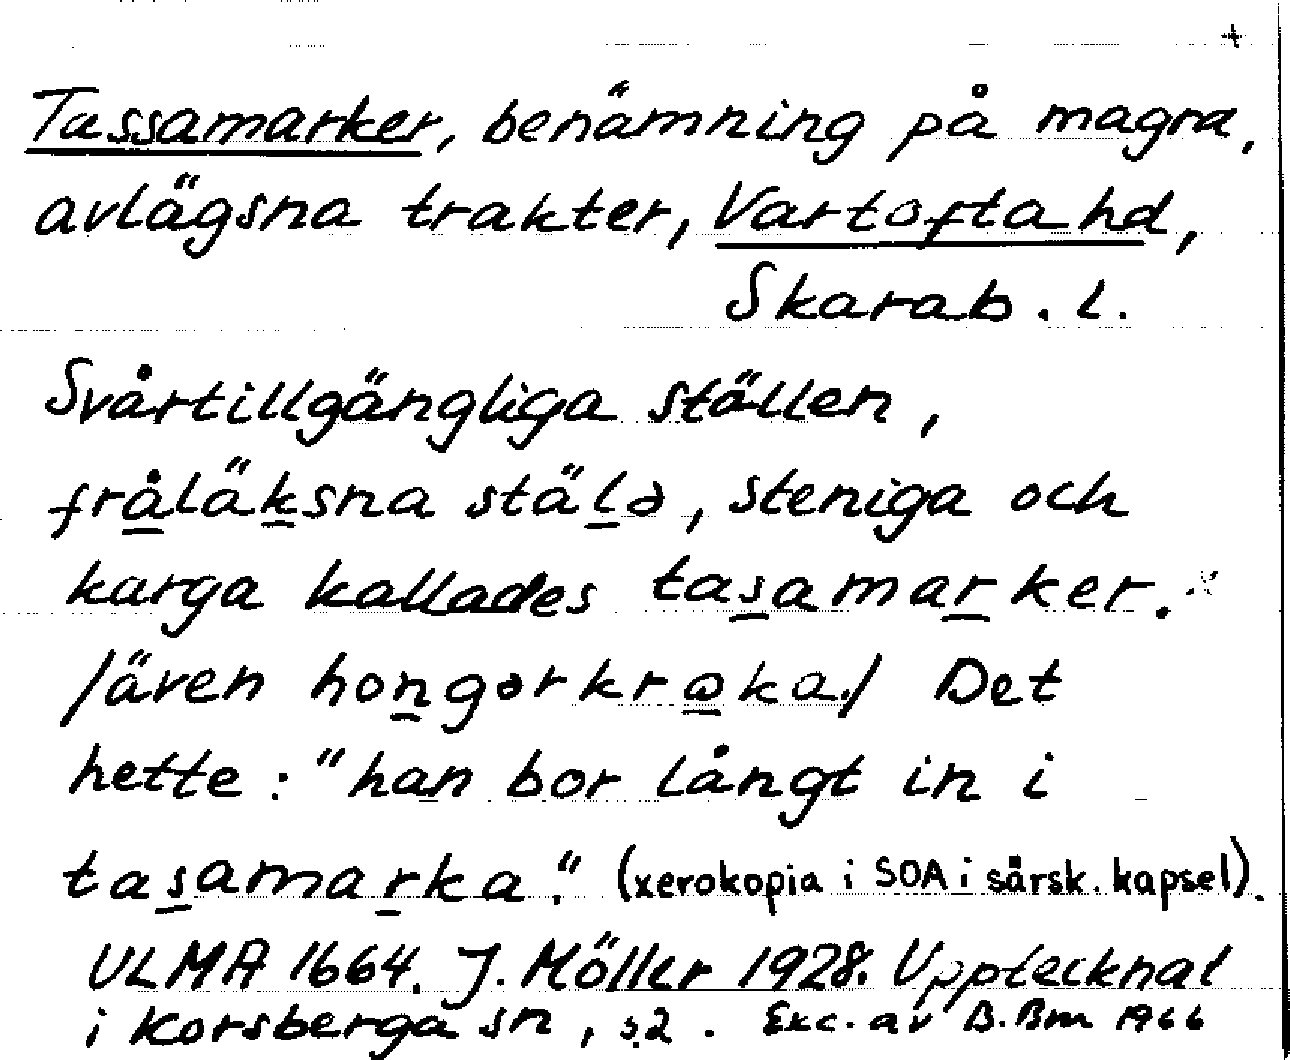 +
Tassamarker, benämning på magra,
avlägsna trakter, Vartofta hd,
Skarab. l.
Svårtillgängliga ställen,
fråläksna stälə, steniga och
karga kallades tasamarker."
/även hongərkrøka./ Det
hette: "han bor långt in i
tasamarka." (xerokopia i SOA i särsk. kapsel).
ULMA 1664. J. Möller 1928. Upptecknat
i Korsberga sn, s. 2. Exc. av B. Bm 1966